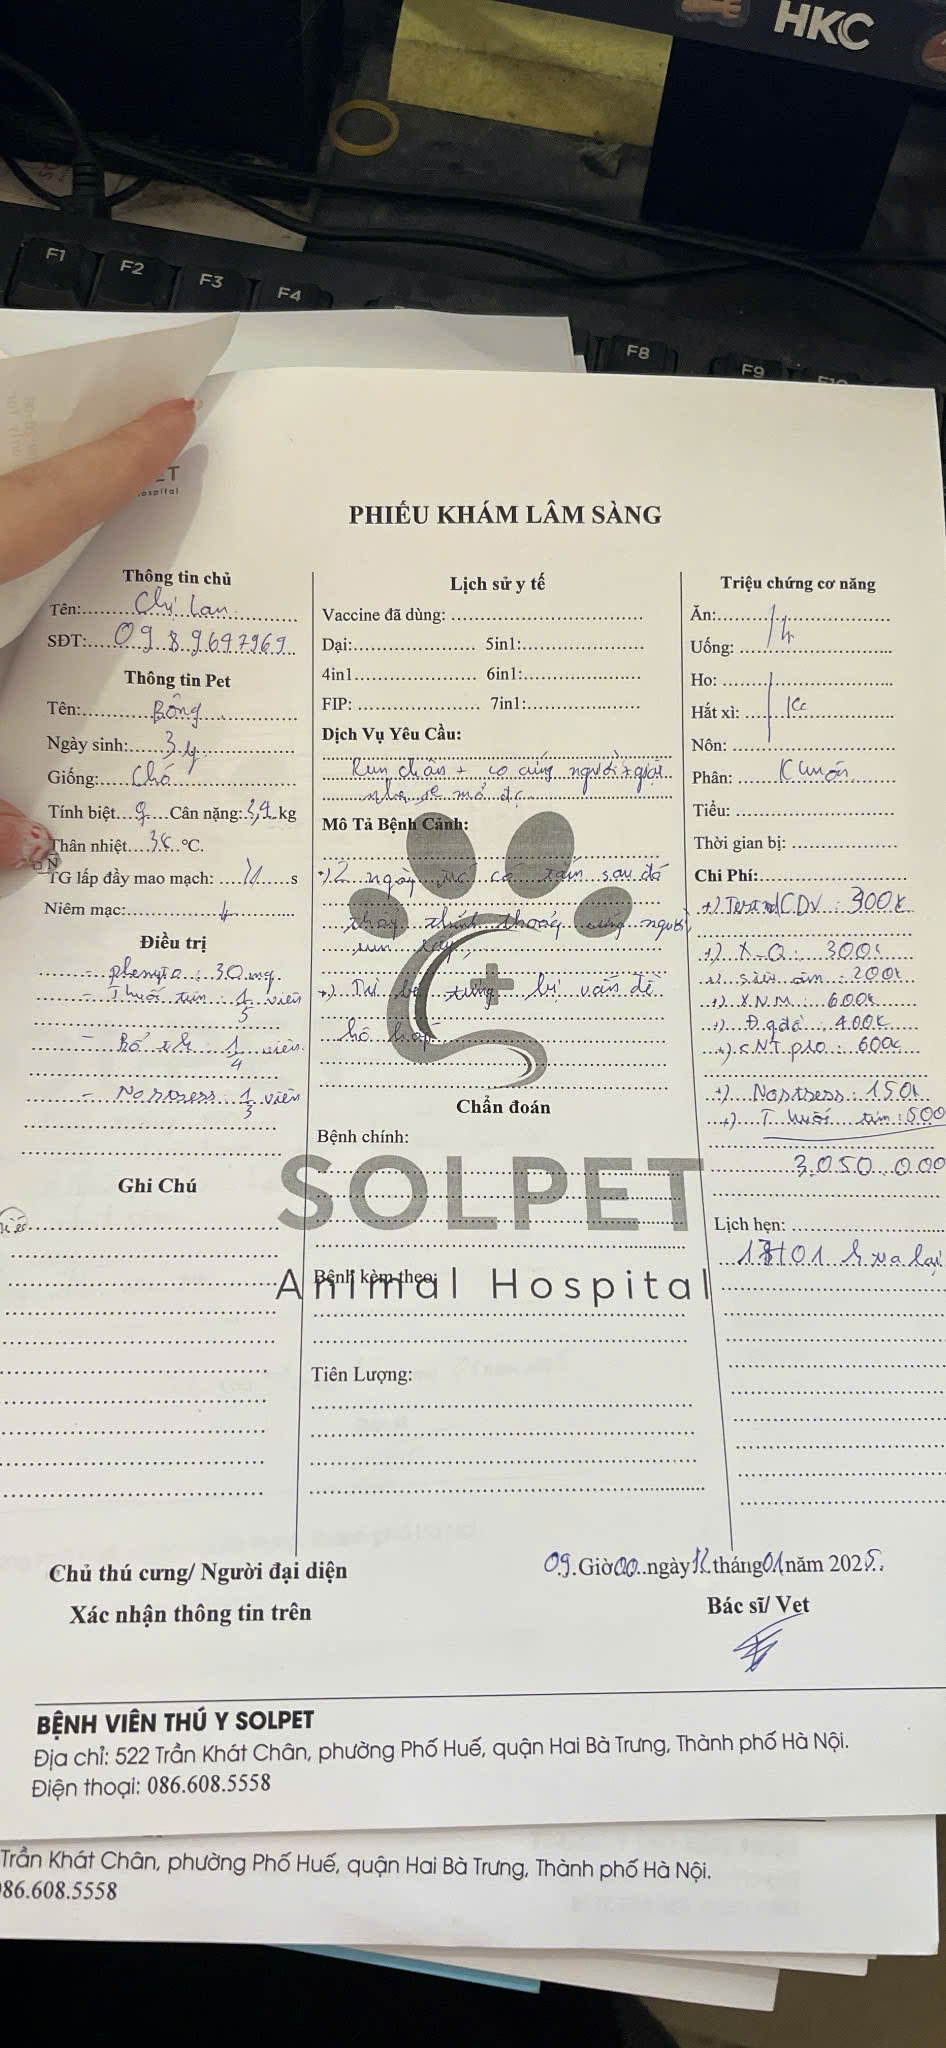 HKC
F1
F2
F3
F4
F8
F9
F10
ET
ospital
PHIẾU KHÁM LÂM SÀNG
Thông tin chủ
Tên: Chị Lan
SĐT: 0989697969
Thông tin Pet
Tên: Bông
Ngày sinh: 3y
Giống: Chó
Tính biệt Cân nặng: 3,9 kg
Thân nhiệt 38 °C.
TG lấp đầy mao mạch: s
Niêm mạc:
Điều trị
- phenyto: 30 mg
- Thuốc tim: 1/5 viên
- Bổ th: 1/4 viên
- Nostress: 1/3 viên
Ghi Chú
Lịch sử y tế
Vaccine đã dùng:
Dại: 5in1:
4in1 6in1:
FIP: 7in1:
Dịch Vụ Yêu Cầu:
Run chân + co cứng người + giật
nhẹ
Mô Tả Bệnh Cảnh:
+) 2 ngày có tắm sau đó
thấy thỉnh thoảng cứng người,
run rẩy,
+) bé từng bị vấn đề
hô hấp
Chẩn đoán
Bệnh chính:
SOLPET
Animal Hospital
Bệnh kèm theo:
Tiên Lượng:
Triệu chứng cơ năng
Ăn:
Uống:
Ho:
Hắt xì: Kc
Nôn:
Phân: Khuôn
Tiểu:
Thời gian bị:
Chi Phí:
+) Test CDV: 300k
+) X-Q: 300k
+) siêu âm: 200k
+) XNM: 600k
+) Đ.g đồ: 400k
+) CNT pro: 600k
+) Nostress: 150k
+) Thuốc tim: 500
3.050.000
Lịch hẹn:
Chủ thú cưng/ Người đại diện
Xác nhận thông tin trên
09 Giờ 00 ngày 12 tháng 01 năm 2025.
Bác sĩ/ Vet
BỆNH VIÊN THÚ Y SOLPET
Địa chỉ: 522 Trần Khát Chân, phường Phố Huế, quận Hai Bà Trưng, Thành phố Hà Nội.
Điện thoại: 086.608.5558
Trần Khát Chân, phường Phố Huế, quận Hai Bà Trưng, Thành phố Hà Nội.
086.608.5558